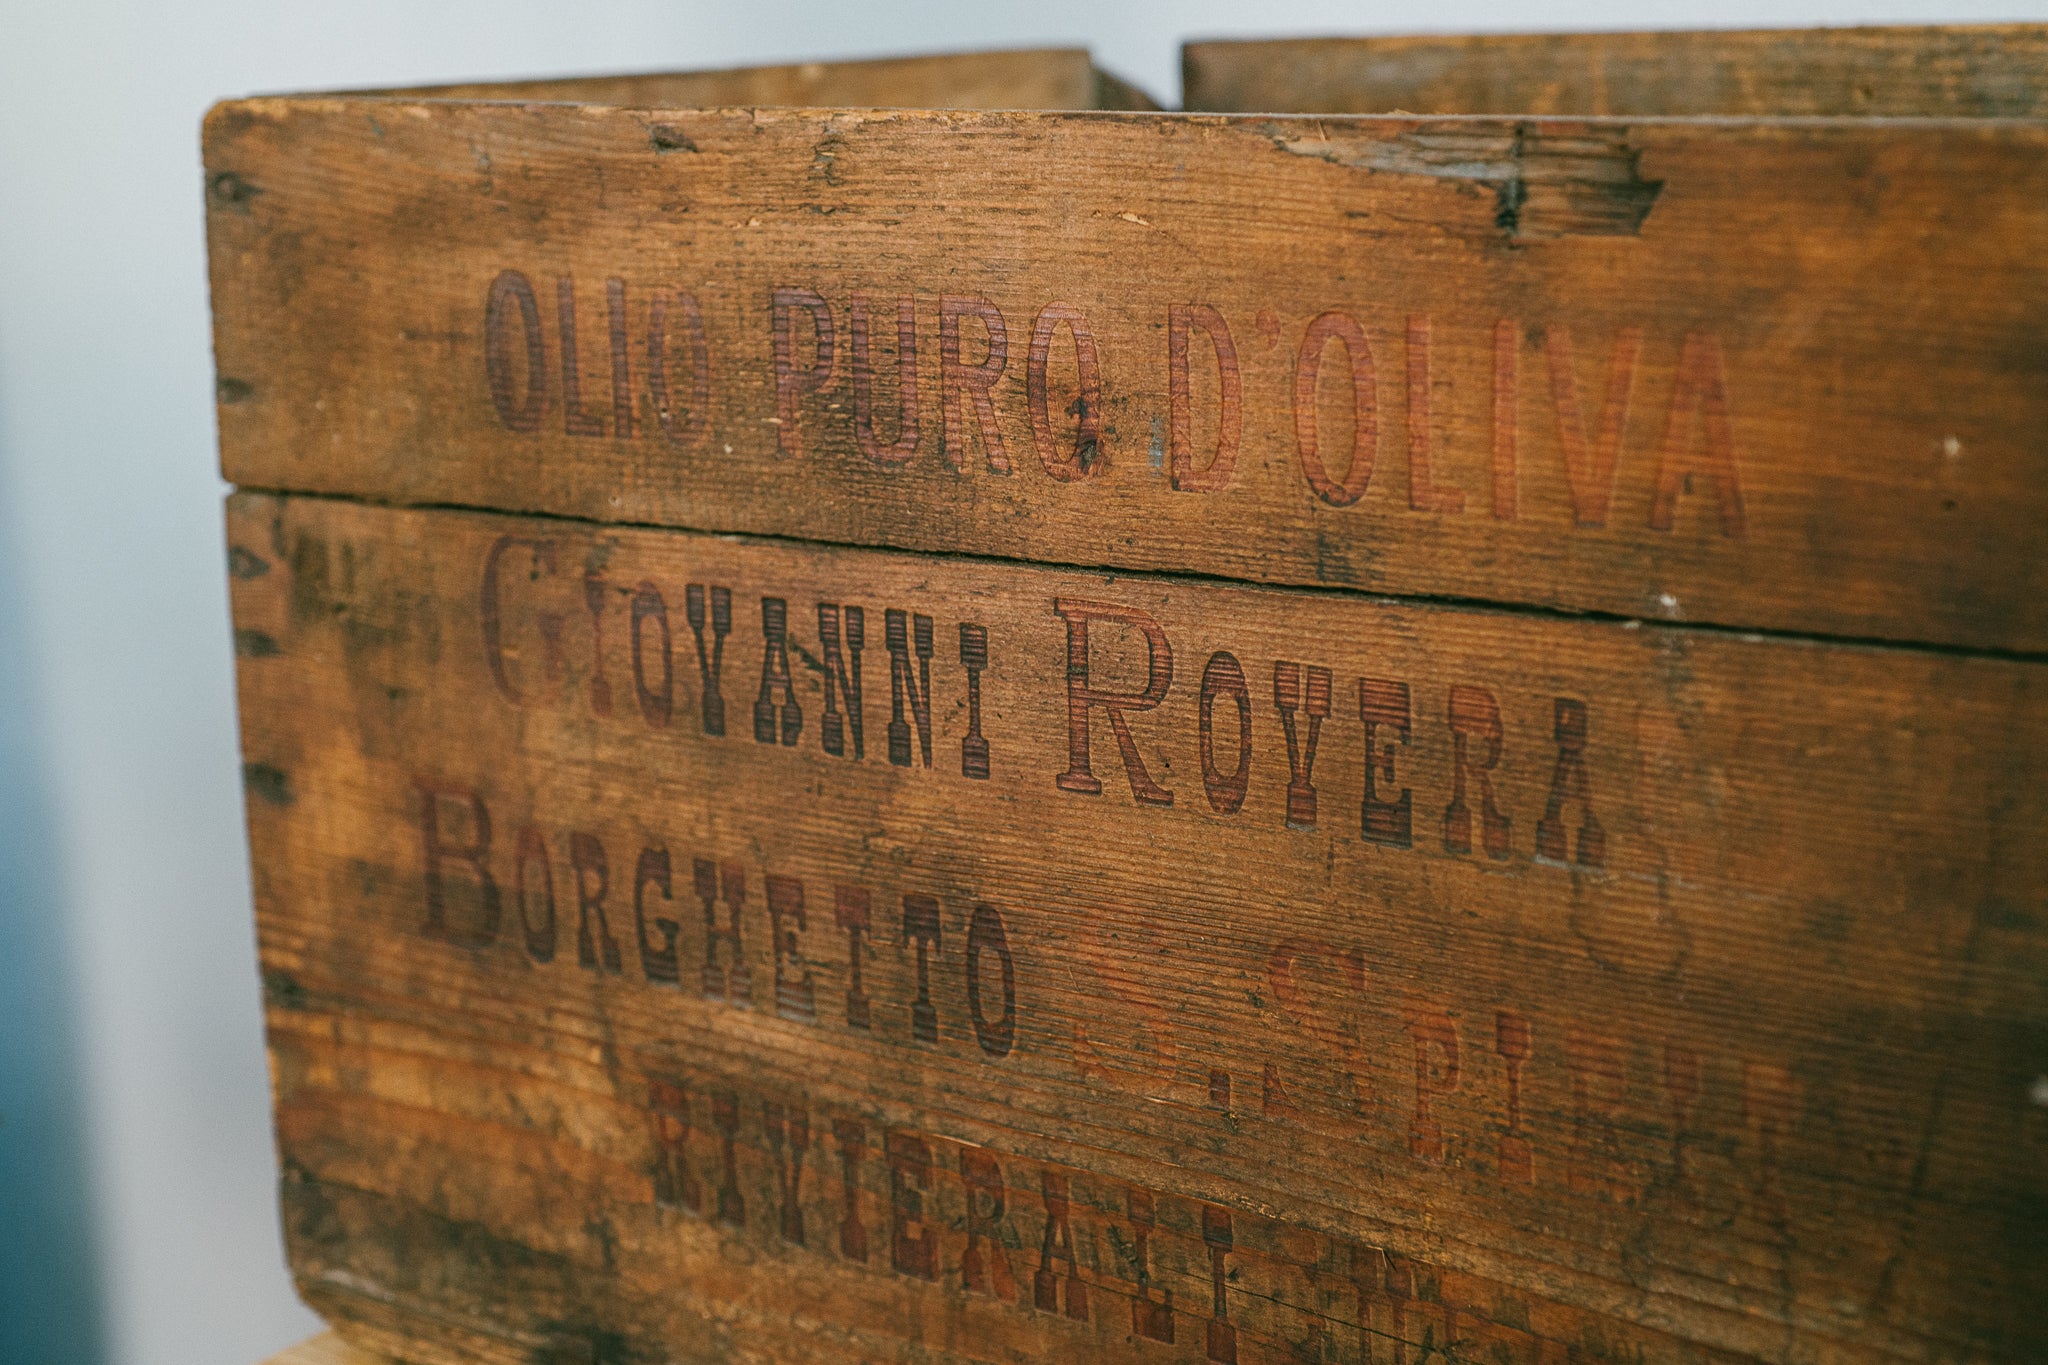 OLIO PURO D'OLIVA
GIOVANNI ROVERA
BORGHETTO S. SPIRITO
RIVIERA LIGURE